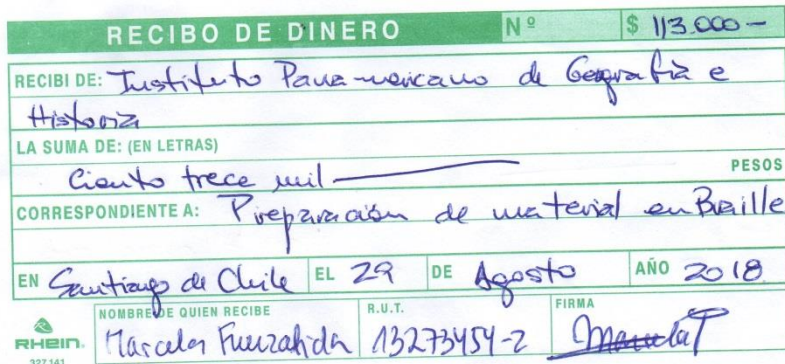 RECIBO DE DINERO Nº $ 113.000-
RECIBI DE: Instituto Panamericano de Geografía e
Historia
LA SUMA DE: (EN LETRAS)
Ciento trece mil PESOS
CORRESPONDIENTE A: Preparación de material en Braille
EN Santiago de Chile EL 29 DE Agosto AÑO 2018
NOMBRE DE QUIEN RECIBE R.U.T. FIRMA
Marcela Fuenzalida 13273454-2 Marcela F
RHein.
327.141